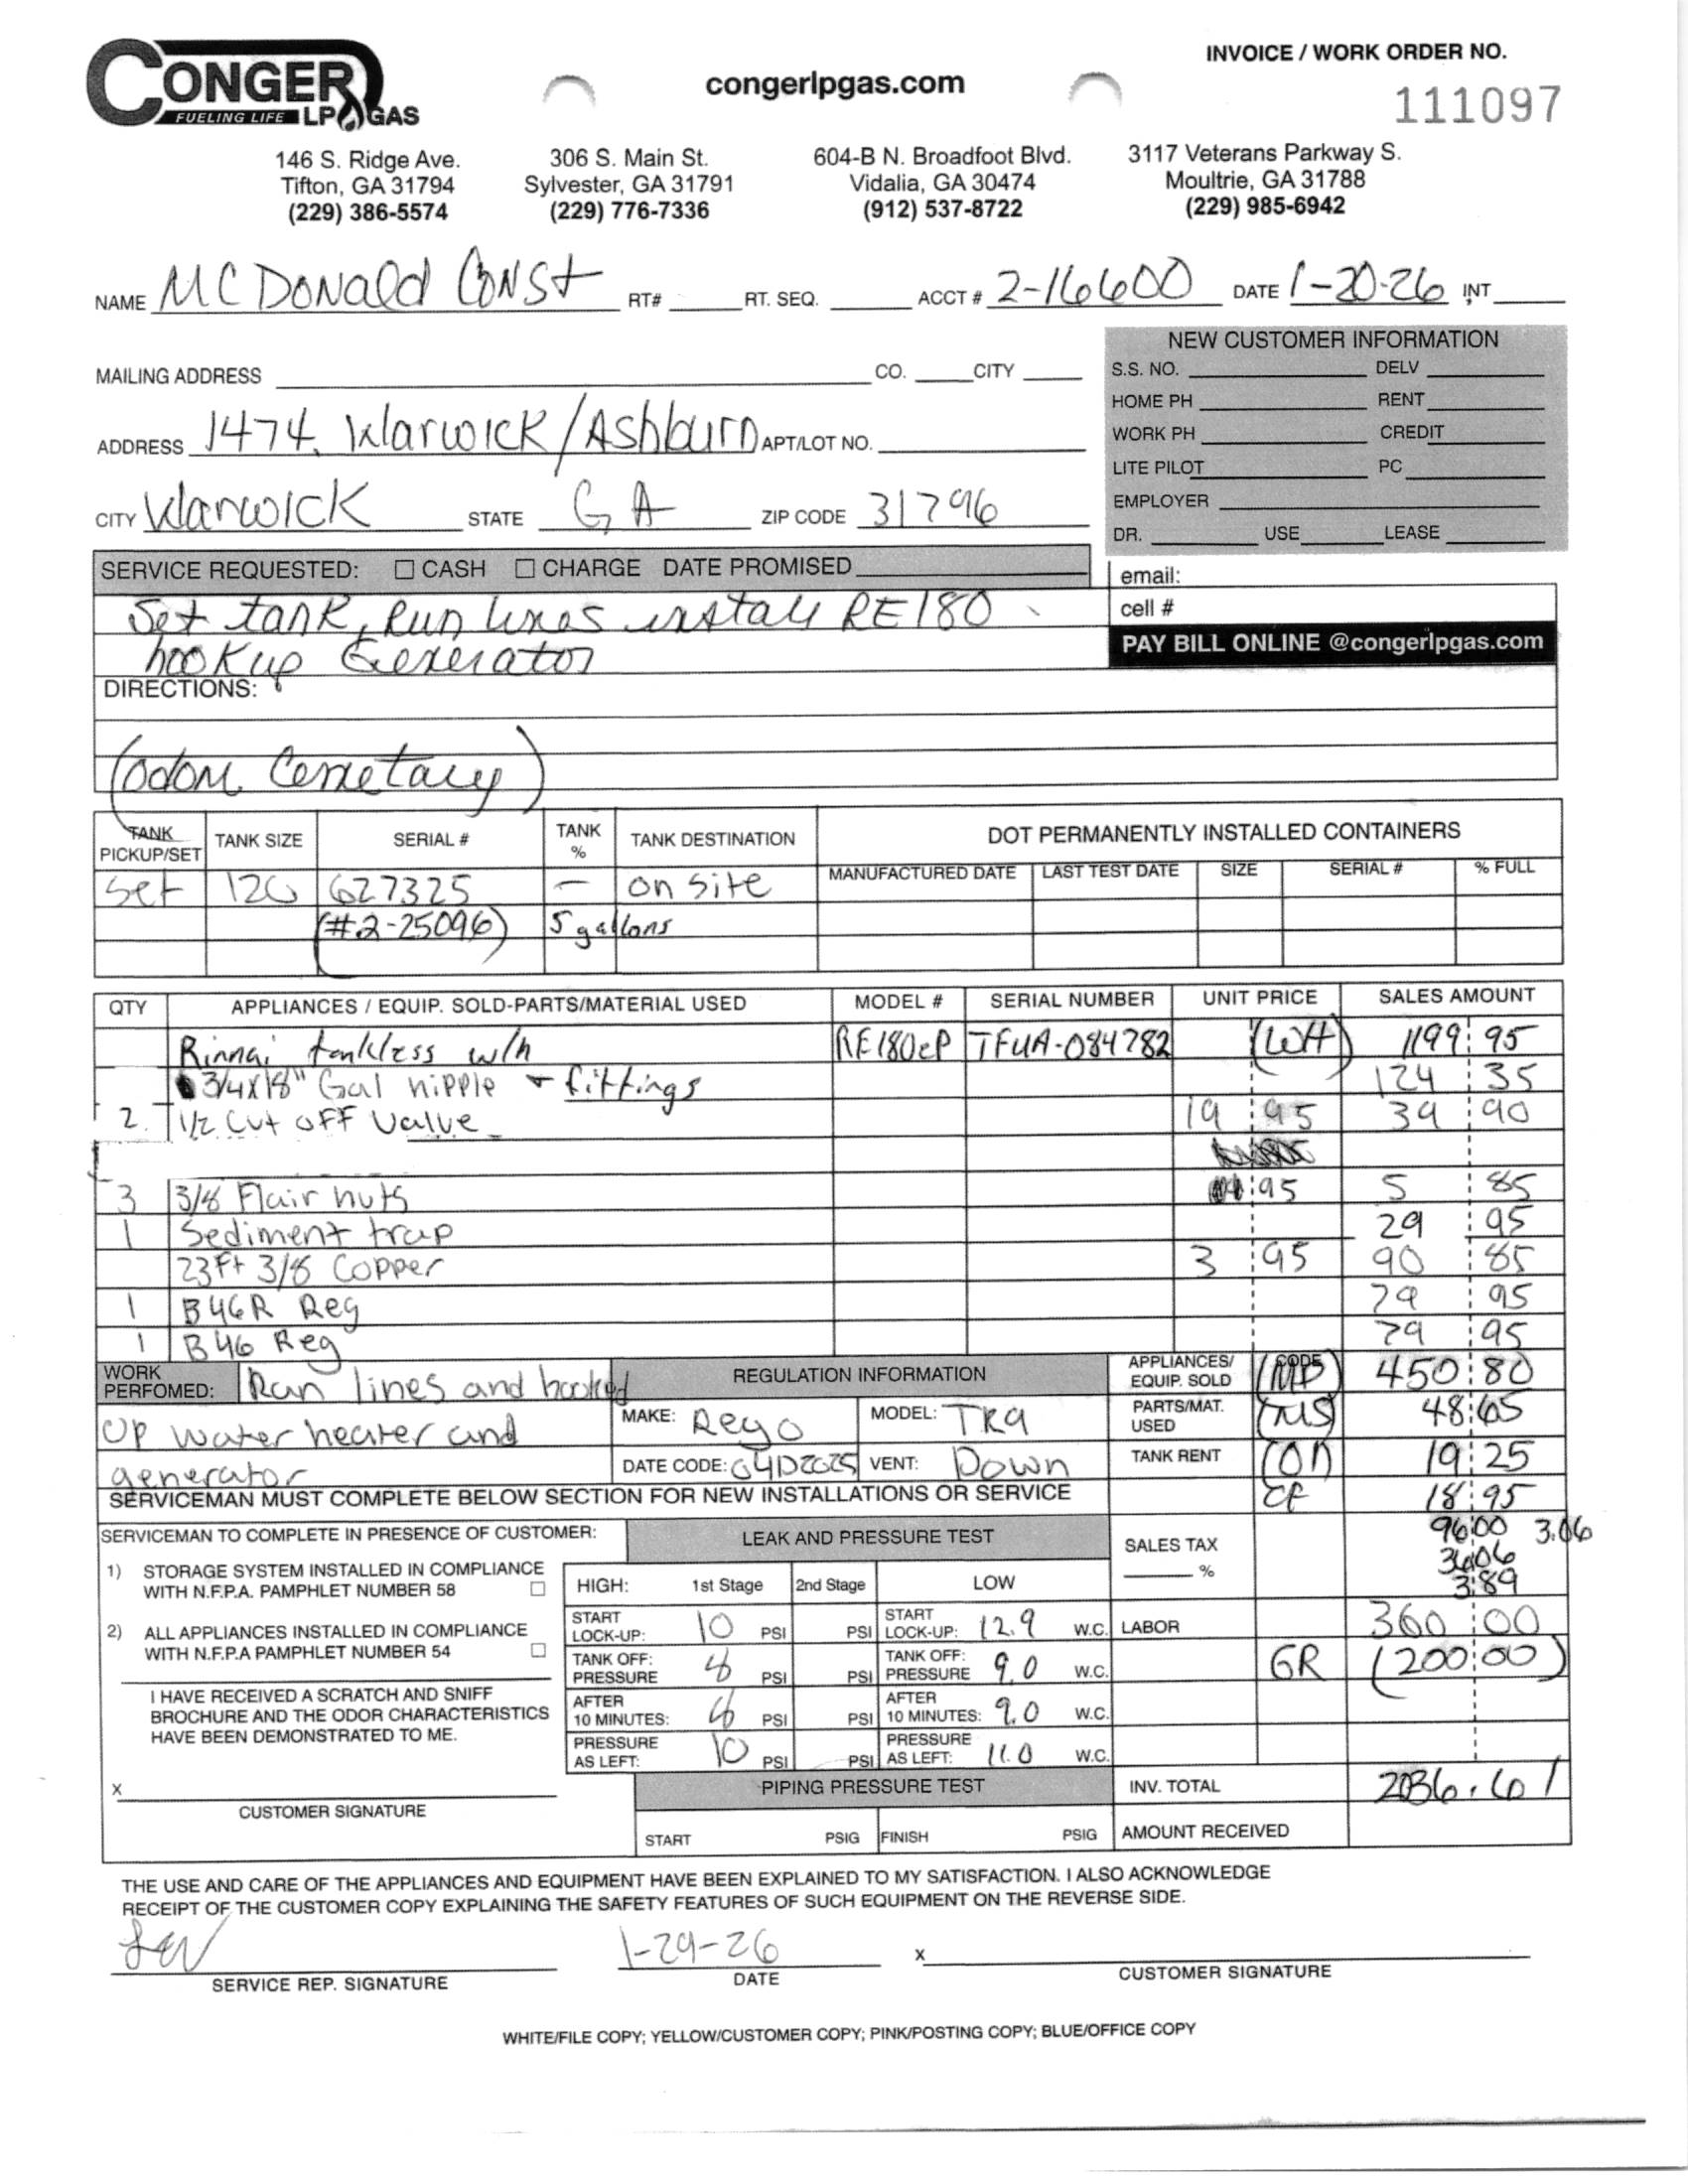 CONGER LP GAS
FUELING LIFE
congerlpgas.com
INVOICE / WORK ORDER NO.
111097
146 S. Ridge Ave. 306 S. Main St. 604-B N. Broadfoot Blvd. 3117 Veterans Parkway S.
Tifton, GA 31794 Sylvester, GA 31791 Vidalia, GA 30474 Moultrie, GA 31788
(229) 386-5574 (229) 776-7336 (912) 537-8722 (229) 985-6942
NAME MCDonald Const RT# RT. SEQ. ACCT # 2-16600 DATE 1-20-26 INT
NEW CUSTOMER INFORMATION
MAILING ADDRESS CO. CITY
S.S. NO. DELV
HOME PH RENT
ADDRESS 1474 Warwick/Ashburn APT/LOT NO.
WORK PH CREDIT
LITE PILOT PC
EMPLOYER
CITY Warwick STATE GA ZIP CODE 31796
DR. USE LEASE
SERVICE REQUESTED: CASH CHARGE DATE PROMISED
email:
Set tank, Run lines install RE180
cell #
hookup Generator
PAY BILL ONLINE @congerlpgas.com
DIRECTIONS:
(Odom Cemetary)
TANK PICKUP/SET TANK SIZE SERIAL # TANK % TANK DESTINATION DOT PERMANENTLY INSTALLED CONTAINERS
MANUFACTURED DATE LAST TEST DATE SIZE SERIAL # % FULL
Set 120 627325 — on site
(#2-25096) 5 gallons
QTY APPLIANCES / EQUIP. SOLD-PARTS/MATERIAL USED MODEL # SERIAL NUMBER UNIT PRICE SALES AMOUNT
Rinnai tankless w/h RE180eP TFUA-084782 (WH) 1199 95
3/4x18" Gal nipple + fittings 124 35
2 1/2 Cut OFF Valve 19 95 39 90
3 3/8 Flair nuts 95 5 85
1 Sediment trap 29 95
23Ft 3/8 Copper 3 95 90 85
1 B46R Reg 79 95
1 B46 Reg 79 95
WORK PERFOMED: Ran lines and hooked
REGULATION INFORMATION
APPLIANCES/ EQUIP. SOLD CODE (MP) 450 80
up water heater and
MAKE: Rego MODEL: TR9
PARTS/MAT. USED (MS) 48 65
generator
DATE CODE: 04D2025 VENT: Down
TANK RENT (ON) 19 25
SERVICEMAN MUST COMPLETE BELOW SECTION FOR NEW INSTALLATIONS OR SERVICE
EF 18 95
SERVICEMAN TO COMPLETE IN PRESENCE OF CUSTOMER:
LEAK AND PRESSURE TEST
SALES TAX %
96 00 3.06
36 06
3 89
1) STORAGE SYSTEM INSTALLED IN COMPLIANCE
WITH N.F.P.A. PAMPHLET NUMBER 58
HIGH: 1st Stage 2nd Stage LOW
2) ALL APPLIANCES INSTALLED IN COMPLIANCE
WITH N.F.P.A PAMPHLET NUMBER 54
START LOCK-UP: 10 PSI PSI START LOCK-UP: 12.9 W.C. LABOR 360 00
TANK OFF: PRESSURE 8 PSI PSI TANK OFF: PRESSURE 9.0 W.C. GR (200 00)
I HAVE RECEIVED A SCRATCH AND SNIFF
BROCHURE AND THE ODOR CHARACTERISTICS
HAVE BEEN DEMONSTRATED TO ME.
AFTER 10 MINUTES: PSI PSI AFTER 10 MINUTES: 9.0 W.C.
PRESSURE AS LEFT: 10 PSI PSI PRESSURE AS LEFT: 11.0 W.C.
X
CUSTOMER SIGNATURE
PIPING PRESSURE TEST
INV. TOTAL 2036.61
START PSIG FINISH PSIG AMOUNT RECEIVED
THE USE AND CARE OF THE APPLIANCES AND EQUIPMENT HAVE BEEN EXPLAINED TO MY SATISFACTION. I ALSO ACKNOWLEDGE
RECEIPT OF THE CUSTOMER COPY EXPLAINING THE SAFETY FEATURES OF SUCH EQUIPMENT ON THE REVERSE SIDE.
1-29-26 X
SERVICE REP. SIGNATURE DATE CUSTOMER SIGNATURE
WHITE/FILE COPY; YELLOW/CUSTOMER COPY; PINK/POSTING COPY; BLUE/OFFICE COPY